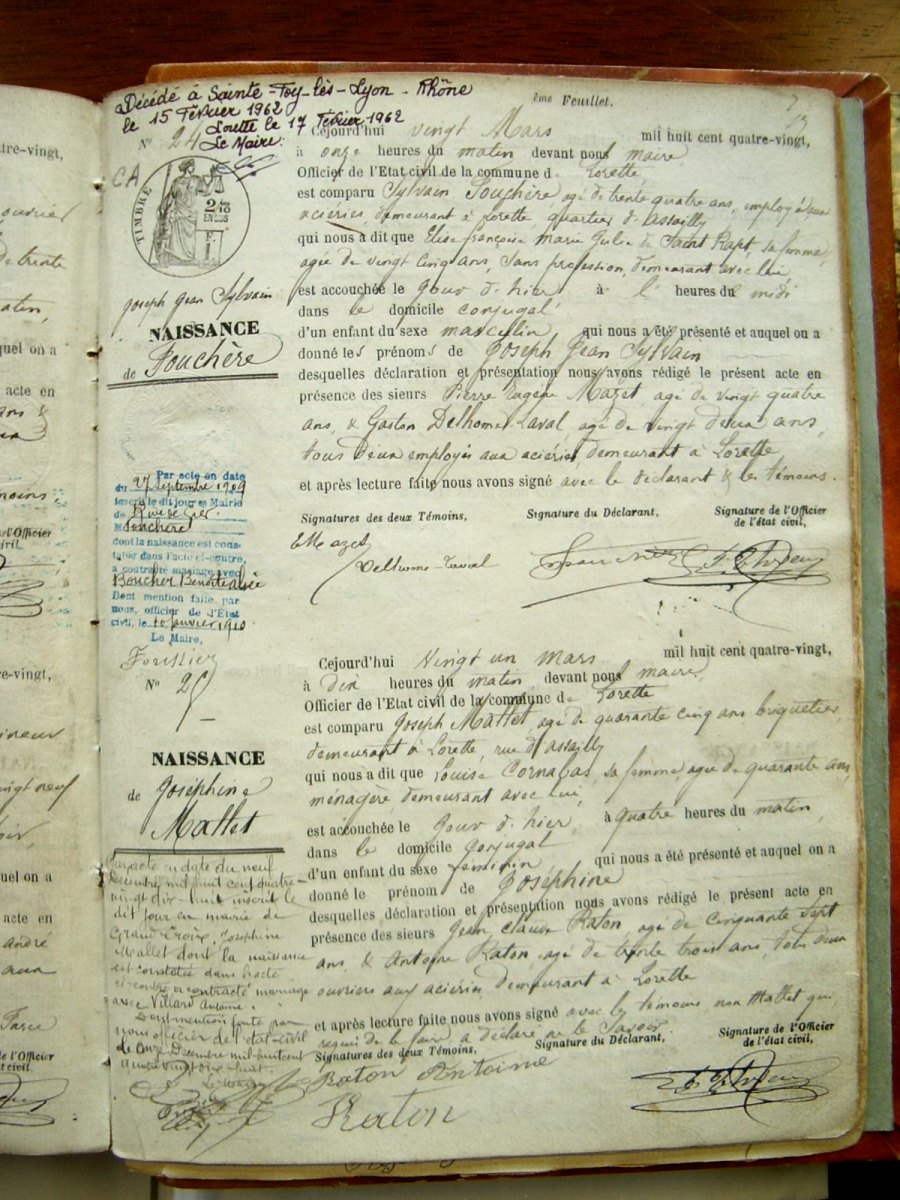 Décédé à Sainte-Foy-lès-Lyon - Rhône
le 15 Février 1962
Loutte le 17 Février 1962
Le Maire
ème Feuillet.
N° 24
CA
TIMBRE
Joseph Jean Sylvain
NAISSANCE
de Fouchère
Par acte en date
du 27 Septembre 1909
inscrit le dit jour en Mairie
de Rive de Gier
M Foucheret
dont la naissance est cons-
tatée dans l'acte ci-contre,
a contracté mariage avec
Boucher Benoite
Dont mention faite par
nous, officier de l'État
civil, le 10 Janvier 1910.
Le Maire,
Cejourd'hui vingt Mars mil huit cent quatre-vingt,
à onze heures du matin devant nous maire
Officier de l'Etat civil de la commune de Lorette
est comparu Sylvain Fouchère agé de trente quatre ans, employé aux
aciéries, demeurant à Lorette quartier d'assailly
qui nous a dit que Elise françoise marie Julie de Saint Rapt, sa femme,
agée de vingt cinq ans, sans profession, demeurant avec lui,
est accouchée le jour d'hier à l' heures du midi
dans le domicile conjugal
d'un enfant du sexe masculin, qui nous a été présenté et auquel on a
donné les prénoms de Joseph Jean Sylvain
desquelles déclaration et présentation nous avons rédigé le présent acte en
présence des sieurs Pierre Eugène Mazet agé de vingt quatre
ans, & Gaston Delhome-Laval, agé de vingt deux ans,
tous deux employés aux aciéries, demeurant à Lorette
et après lecture faite nous avons signé avec le déclarant & les témoins.
Signatures des deux Témoins, Signature du Déclarant, Signature de l'Officier
de l'état civil,
E Mazet
Delhome-Laval
N° 25
NAISSANCE
de Joséphine
Mallet
Par acte en date du neuf
Décembre mil huit cent quatre-
vingt dix-huit inscrit le
dit jour en mairie de
Grand Croix, Joséphine
Mallet dont la naissance
est constatée dans l'acte
ci-contre a contracté mariage
avec Villard Antoine.
Dont mention faite par
nous officier de l'état-civil
le onze Décembre mil huit cent
quatre vingt dix-huit.
Cejourd'hui Vingt un mars mil huit cent quatre-vingt,
à dix heures du matin devant nous maire
Officier de l'Etat civil de la commune de Lorette
est comparu Joseph Mallet agé de quarante cinq ans briquetier
demeurant à Lorette, rue d'assailly
qui nous a dit que Louise Cornabas, sa femme, agée de quarante ans,
ménagère demeurant avec lui,
est accouchée le jour d'hier, à quatre heures du matin,
dans le domicile conjugal
d'un enfant du sexe féminin qui nous a été présenté et auquel on a
donné le prénom de Joséphine
desquelles déclaration et présentation nous avons rédigé le présent acte en
présence des sieurs Jean Claude Raton, agé de cinquante sept
ans, & Antoine Raton, agé de trente trois ans, tous deux
ouvriers aux aciéries, demeurant à Lorette
et après lecture faite nous avons signé avec les témoins, non Mallet qui
requis de le faire a déclaré ne le savoir
Signatures des deux Témoins, Signature du Déclarant, Signature de l'Officier
de l'état civil,
Raton Antoine
Raton